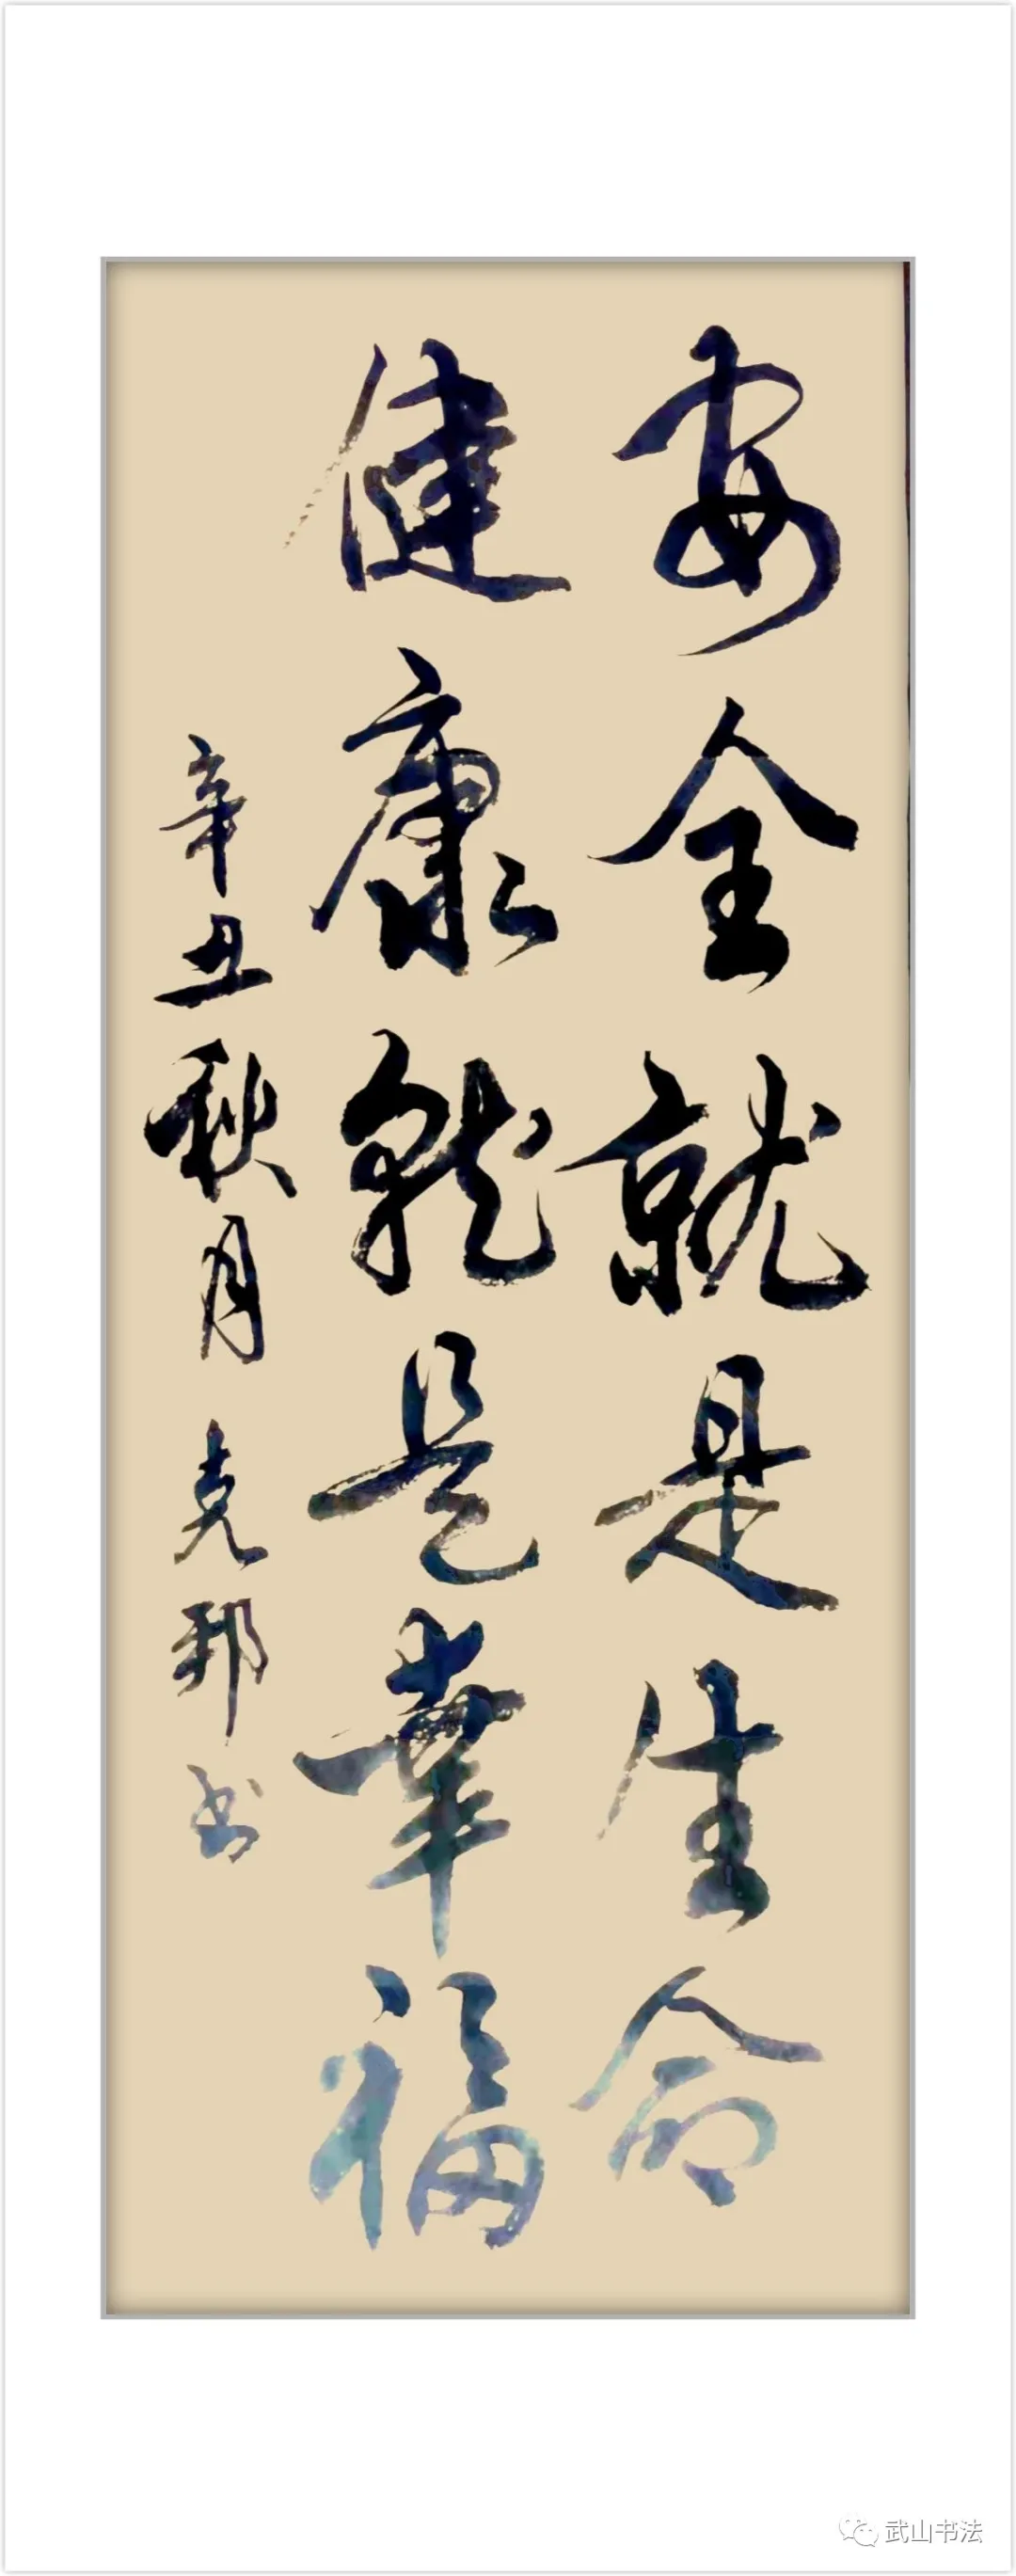 安全就是生命
健康就是幸福
辛丑秋月 克邦书
武山书法